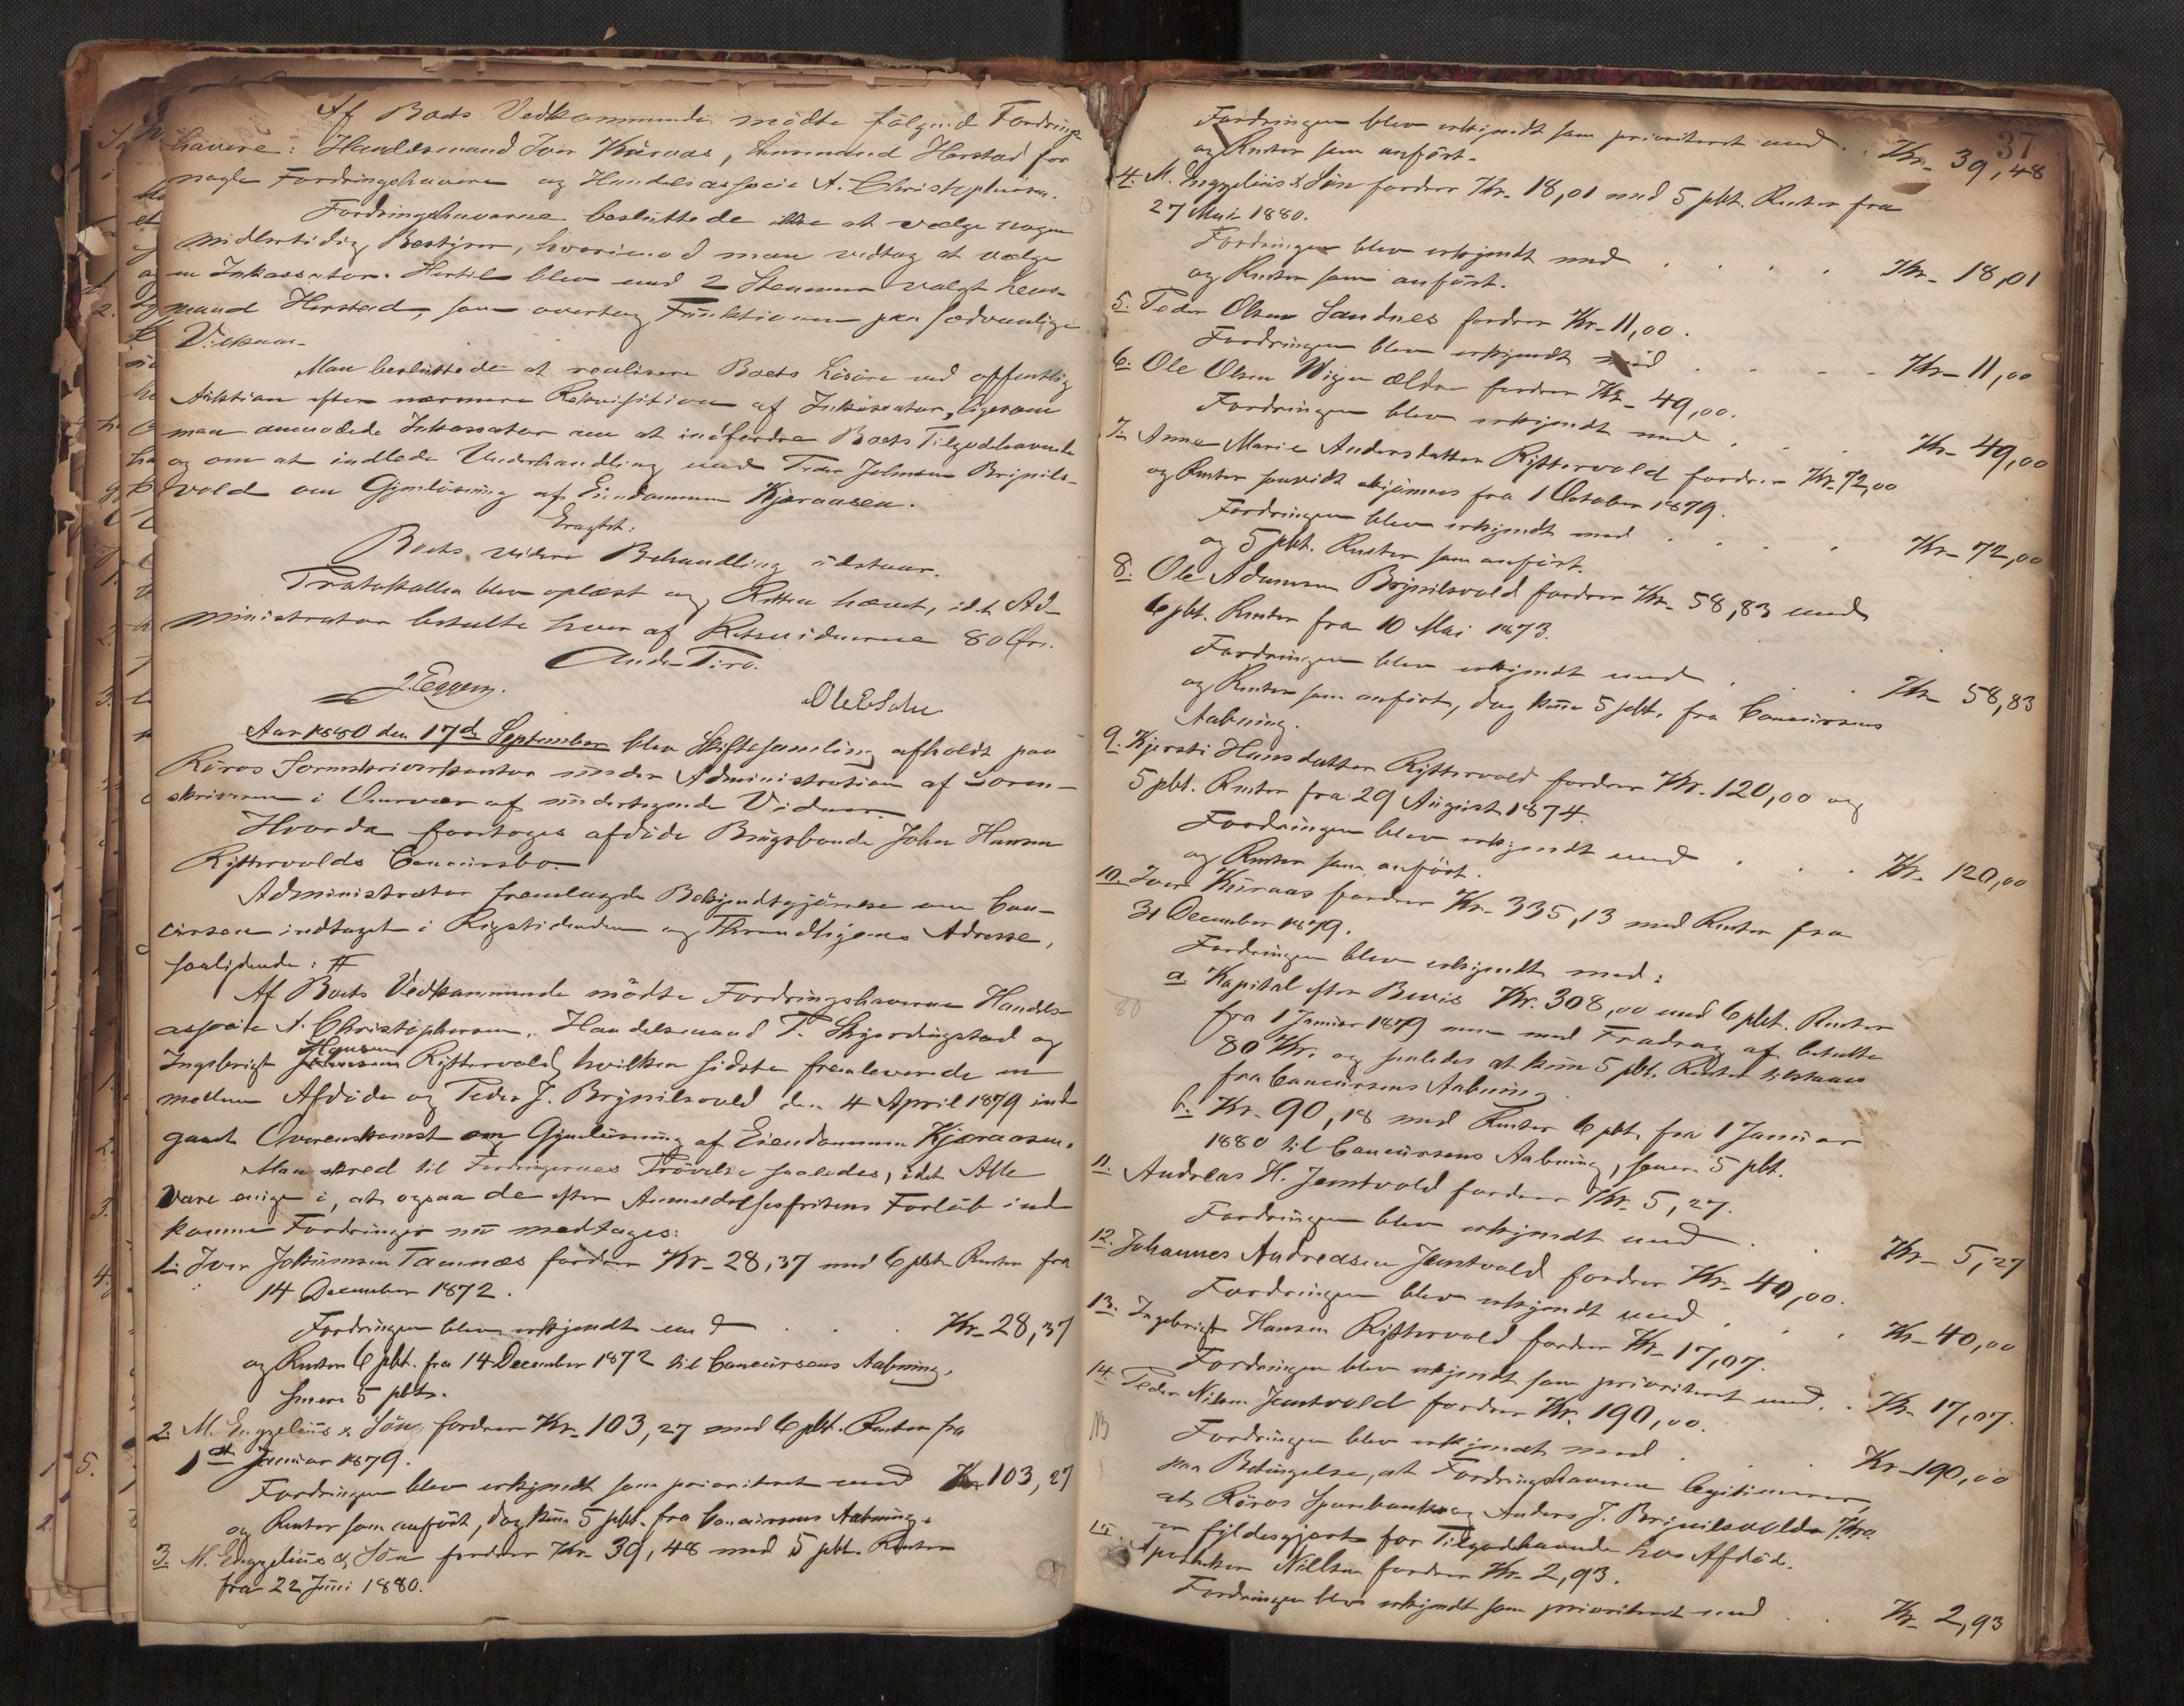 Af Boets Vedkommende mödte fölgende Fordrings-
havere: Handelsmand Iver Küraas, Lensmand Herstad for
nogle Fordringshavere og Handelsassocie A. Christophersen.
Fordringshaverne besluttede ikke at vælge nogen
midlertidig Bestyrer, hvorimod man vedtog at vælge
en Inkassator. Hertil blev med 2 Stemmer valgt Lens-
mand Herstad, som overtog Funktionen paa sædvanlige
Vilkaar.
Man besluttede at realisere Boets Lösöre ved offentlig
Auktion efter nærmere Rekvisition af Inkassator, ligesom
man anmodede Inkassator om at indfordre Boets Tilgodehavende
og om at indlede Underhandling med Peder Johnsen Brynils-
vold om Gjenlösning af Eiendommen Kjæraasen.
Eragtet:
Boets videre Behandling udstaar.
Protokollen blev oplæst og Retten hævet, idet Ad-
ministrator betalte hver af Retsvidnerne 80 Öre.
J. Eggen.
Aar 1880 den 17de September blev Skiftesamling afholdt paa
Röros Sorenskriverkontor under Administration af Soren-
skriveren i Overvær af undertegnede Vidner.
Hvorda foretoges afdöde Brugsbonde John Hansen
Ryttervolds Concursbo.
Administrator fremlagde Bekjendtgjörelse om Con-
cursen indtaget i Rigstidenden og Throndhjems Adresse,
saalydende: #
Af Boets Vedkommende mödte Fordringshaverne Handels-
associe A. Christophersen, Handelsmand P. Skjerdingstad og
Ingebrigt Hansen Ryttervold, hvilken sidste fremleverede en
mellem Afdöde og Peder J. Brynilsvold den 4 April 1879 ind-
gaaet Overenskomst om Gjenlösning af Eiendommen Kjæraasen.
Man skred til Fordringernes Prövelse saaledes, idet Alle
vare enige i, at ogsaa de efter Anmeldelsesfristens Forlöb ind-
komne Fordringer nu medtages:
1. Iver Jokumsen Tamnæs fordrer Kr. 28,37 med 6 pCt. Renter fra
14 December 1872.
Fordringen blev erkjendt med . . . Kr. 28,37
og Renter 6 pCt. fra 14 December 1872 til Concursens Aabning,
senere 5 pCt.
2. M. Engzelius & Sön fordrer Kr. 103,27 med 6 pCt. Renter fra
1st Januar 1879.
Fordringen blev erkjendt som prioriteret med Kr. 103,27
og Renter som anfört, dog kun 5 pCt. fra Concursens Aabning.
3. M. Engzelius & Sön fordrer Kr. 39,48 med 5 pCt. Renter
fra 22 Juni 1880.
37
Fordringen blev erkjendt som prioriteret med . . Kr. 39,48
og Renter som anfört.
4. M. Engzelius & Sön fordrer Kr. 18,01 med 5 pCt. Renter fra
27 Mai 1880.
Fordringen blev erkjendt med . . . . Kr. 18,01
og Renter som anfört.
5. Peder Olsen Sandnes fordrer Kr. 11,00.
Fordringen blev erkjendt med . . . . Kr. 11,00
6. Ole Olsen Wigen ældre fordrer Kr. 49,00.
Fordringen blev erkjendt med . . . Kr. 49,00
7. Anne Marie Andersdatter Ryttervold fordrer Kr. 72,00
og Renter saavidt skjönnes fra 1 October 1879.
Fordringen blev erkjendt med . . . . Kr. 72,00
og 5 pCt. Renter som anfört.
8. Ole Adamsen Brynilsvold fordrer Kr. 58,83 med
6 pCt. Renter fra 10 Mai 1873.
Fordringen blev erkjendt med . . . Kr. 58,83
og Renter som anfört, dog kun 5 pCt. fra Concursens
Aabning.
9. Kjersti Hansdatter Ryttervold fordrer Kr. 120,00 og
5 pCt. Renter fra 29 August 1874.
Fordringen blev erkjendt med . . . Kr. 120,00
og Renter som anfört.
10. Iver Küraas fordrer Kr. 335,13 med Renter fra
31 December 1879.
Fordringen blev erkjendt med:
a. Kapital efter Bevis Kr. 308,00 med 6 pCt. Renter
fra 1 Januar 1879 men med Fradrag af betalte
80 Kr. og saaledes at kun 5 pCt. Renter tilstaaes
fra Concursens Aabning.
b. Kr. 90,18 med Renter 6 pCt. fra 1 Januar
1880 til Concursens Aabning, senere 5 pCt.
11. Andreas H. Jemtvold fordrer Kr. 5,27.
Fordringen blev erkjendt med . . Kr. 5,27
12. Johannes Andreasen Jemtvold fordrer Kr. 40,00.
Fordringen blev erkjendt med . . . Kr. 40,00
13. Ingebrigt Hansen Ryttervold fordrer Kr. 17,07.
Fordringen blev erkjendt som prioriteret med . . Kr. 17,07.
14. Peder Nilsen Jemtvold fordrer Kr. 190,00.
Fordringen blev erkjendt med . . . Kr. 190,00
paa Betingelse, at Fordringshaveren legitimerer,
at Röros Sparebank og Anders J. Brynilsvolds
er fyldesgjort for Tilgodehavende hos Afdöde.
15. Apotheker Nillsen fordrer Kr. 2,93.
Fordringen blev erkjendt som prioriteret med . . Kr. 2,93